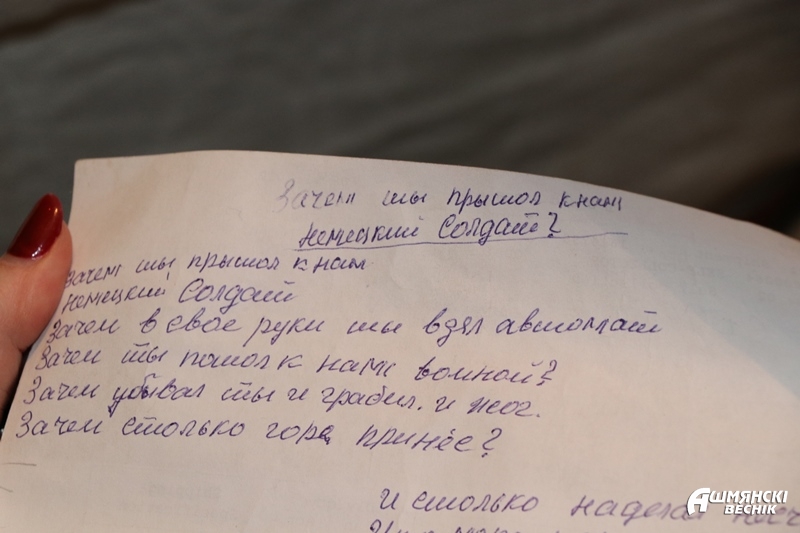 Зачем ты прышол к нам
немецкий Солдат?
Зачем ты прышол к нам
немецкий Солдат
Зачем в свое руки ты взял автомат
Зачем ты пошол к намь войной?
Зачем убывал ты и грабил. и жог.
Зачем столько горя принёс?
И столько наделал
АШМЯНСКІ
ВЕСНІК